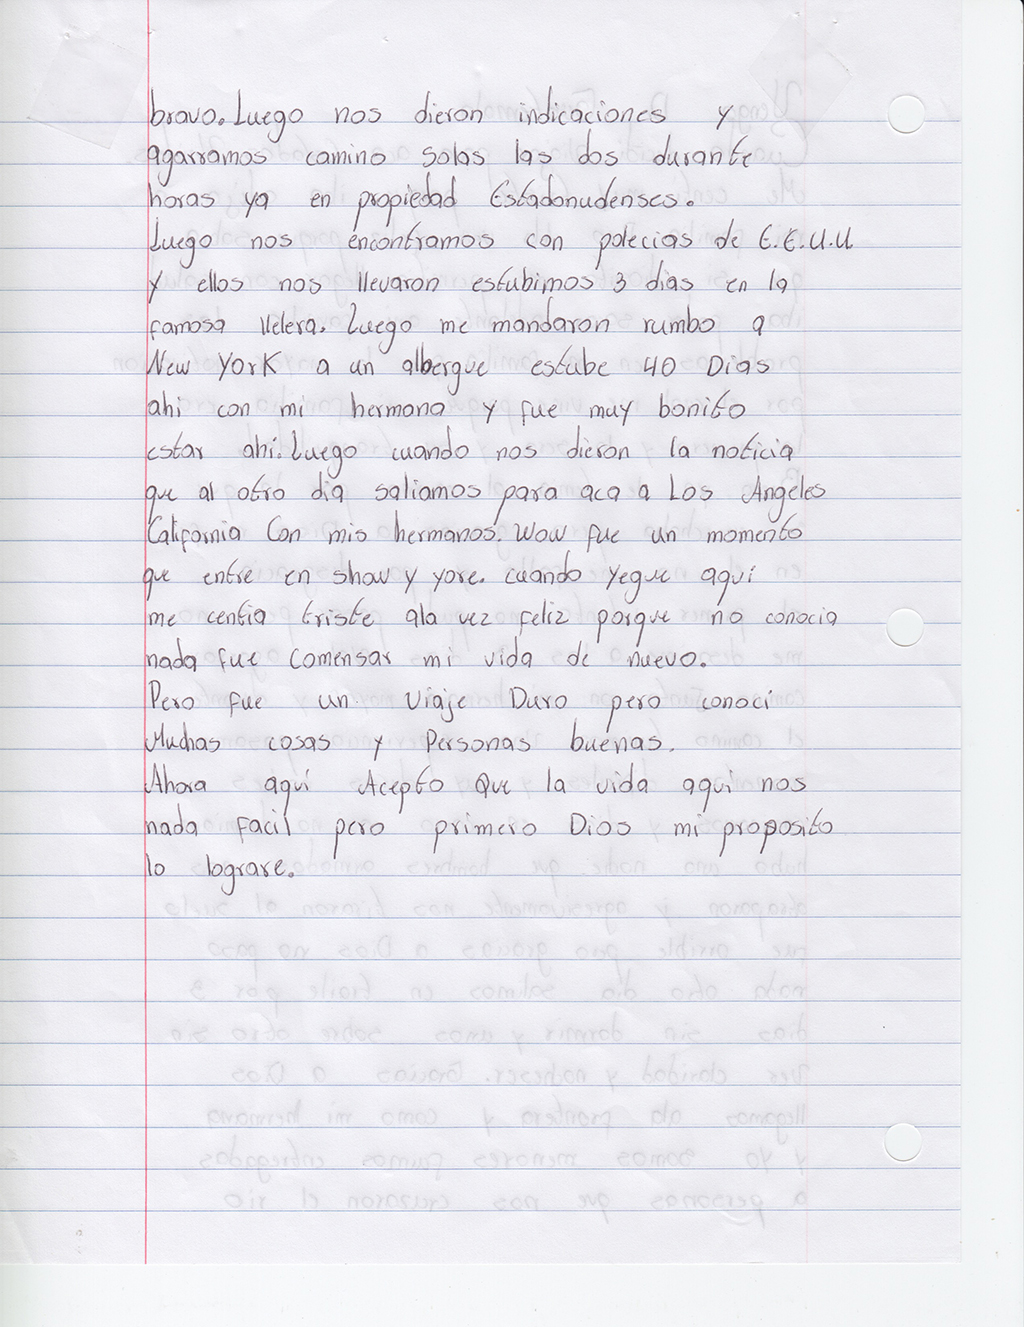 bravo. Luego nos dieron indicaciones y
agarramos camino solas las dos durante
horas ya en propiedad Estadonudenses.
Luego nos encontramos con polecias de E.E.U.U.
y ellos nos llevaron estubimos 3 dias en la
famosa llelera. Luego me mandaron rumbo a
New York a un albergue estube 40 Dias
ahi con mi hermana y fue muy bonito
estar ahí. Luego cuando nos dieron la noticia
que al otro dia saliamos para aca a Los Angeles
California Con mis hermanos. Wow fue un momento
que entre en show y yore. cuando yegue aquí
me centia triste ala vez feliz porque no conocia
nada fue comensar mi vida de nuevo.
Pero fue un Viaje Duro pero conocí
Muchas cosas y Personas buenas.
Ahora aquí Acepto Que la vida aqui nos
nada facil pero primero Dios mi proposito
lo lograre.